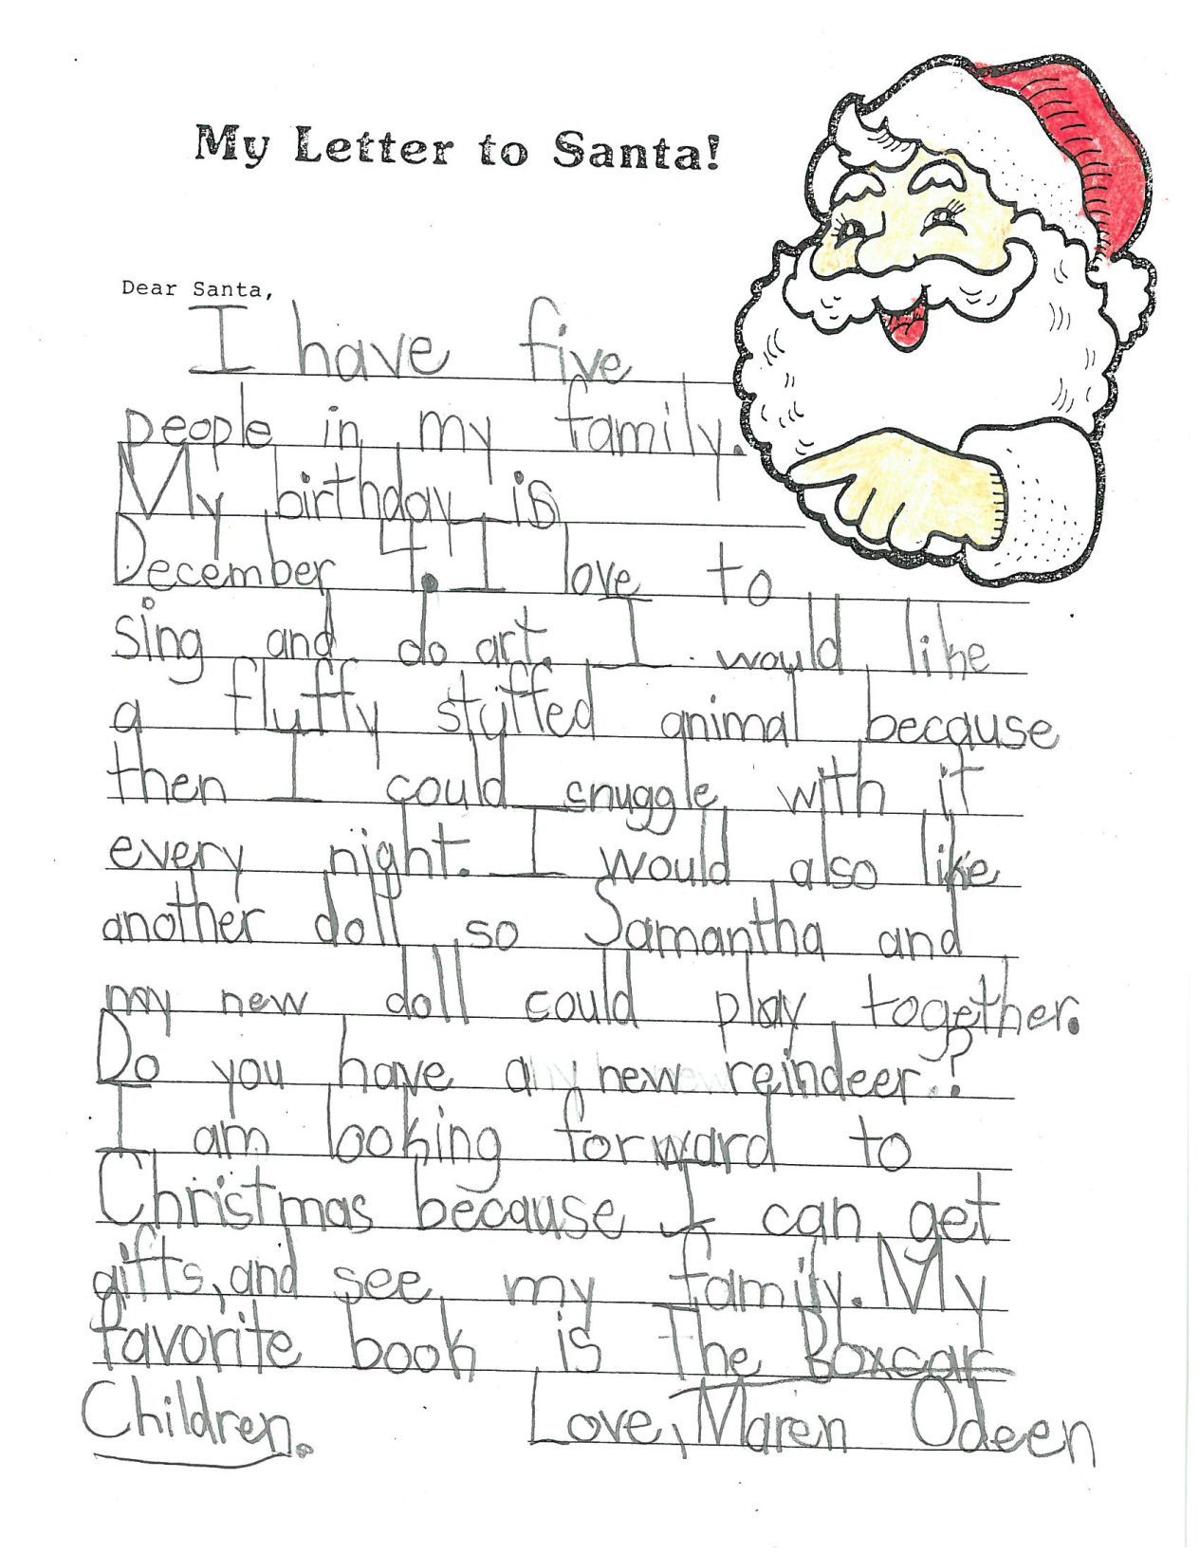 My Letter to Santa!
Dear Santa,
I have five
people in my family.
My birthday is
December 4. I love to
sing and do art. I would like
a fluffy stuffed animal because
then I could snuggle with it
every night. I would also like
another doll so Samantha and
my new doll could play together.
Do you have any new reindeer?
I am looking forward to
Christmas because I can get
gifts, and see my family. My
favorite book is The Boxcar
Children. Love, Maren Odeen